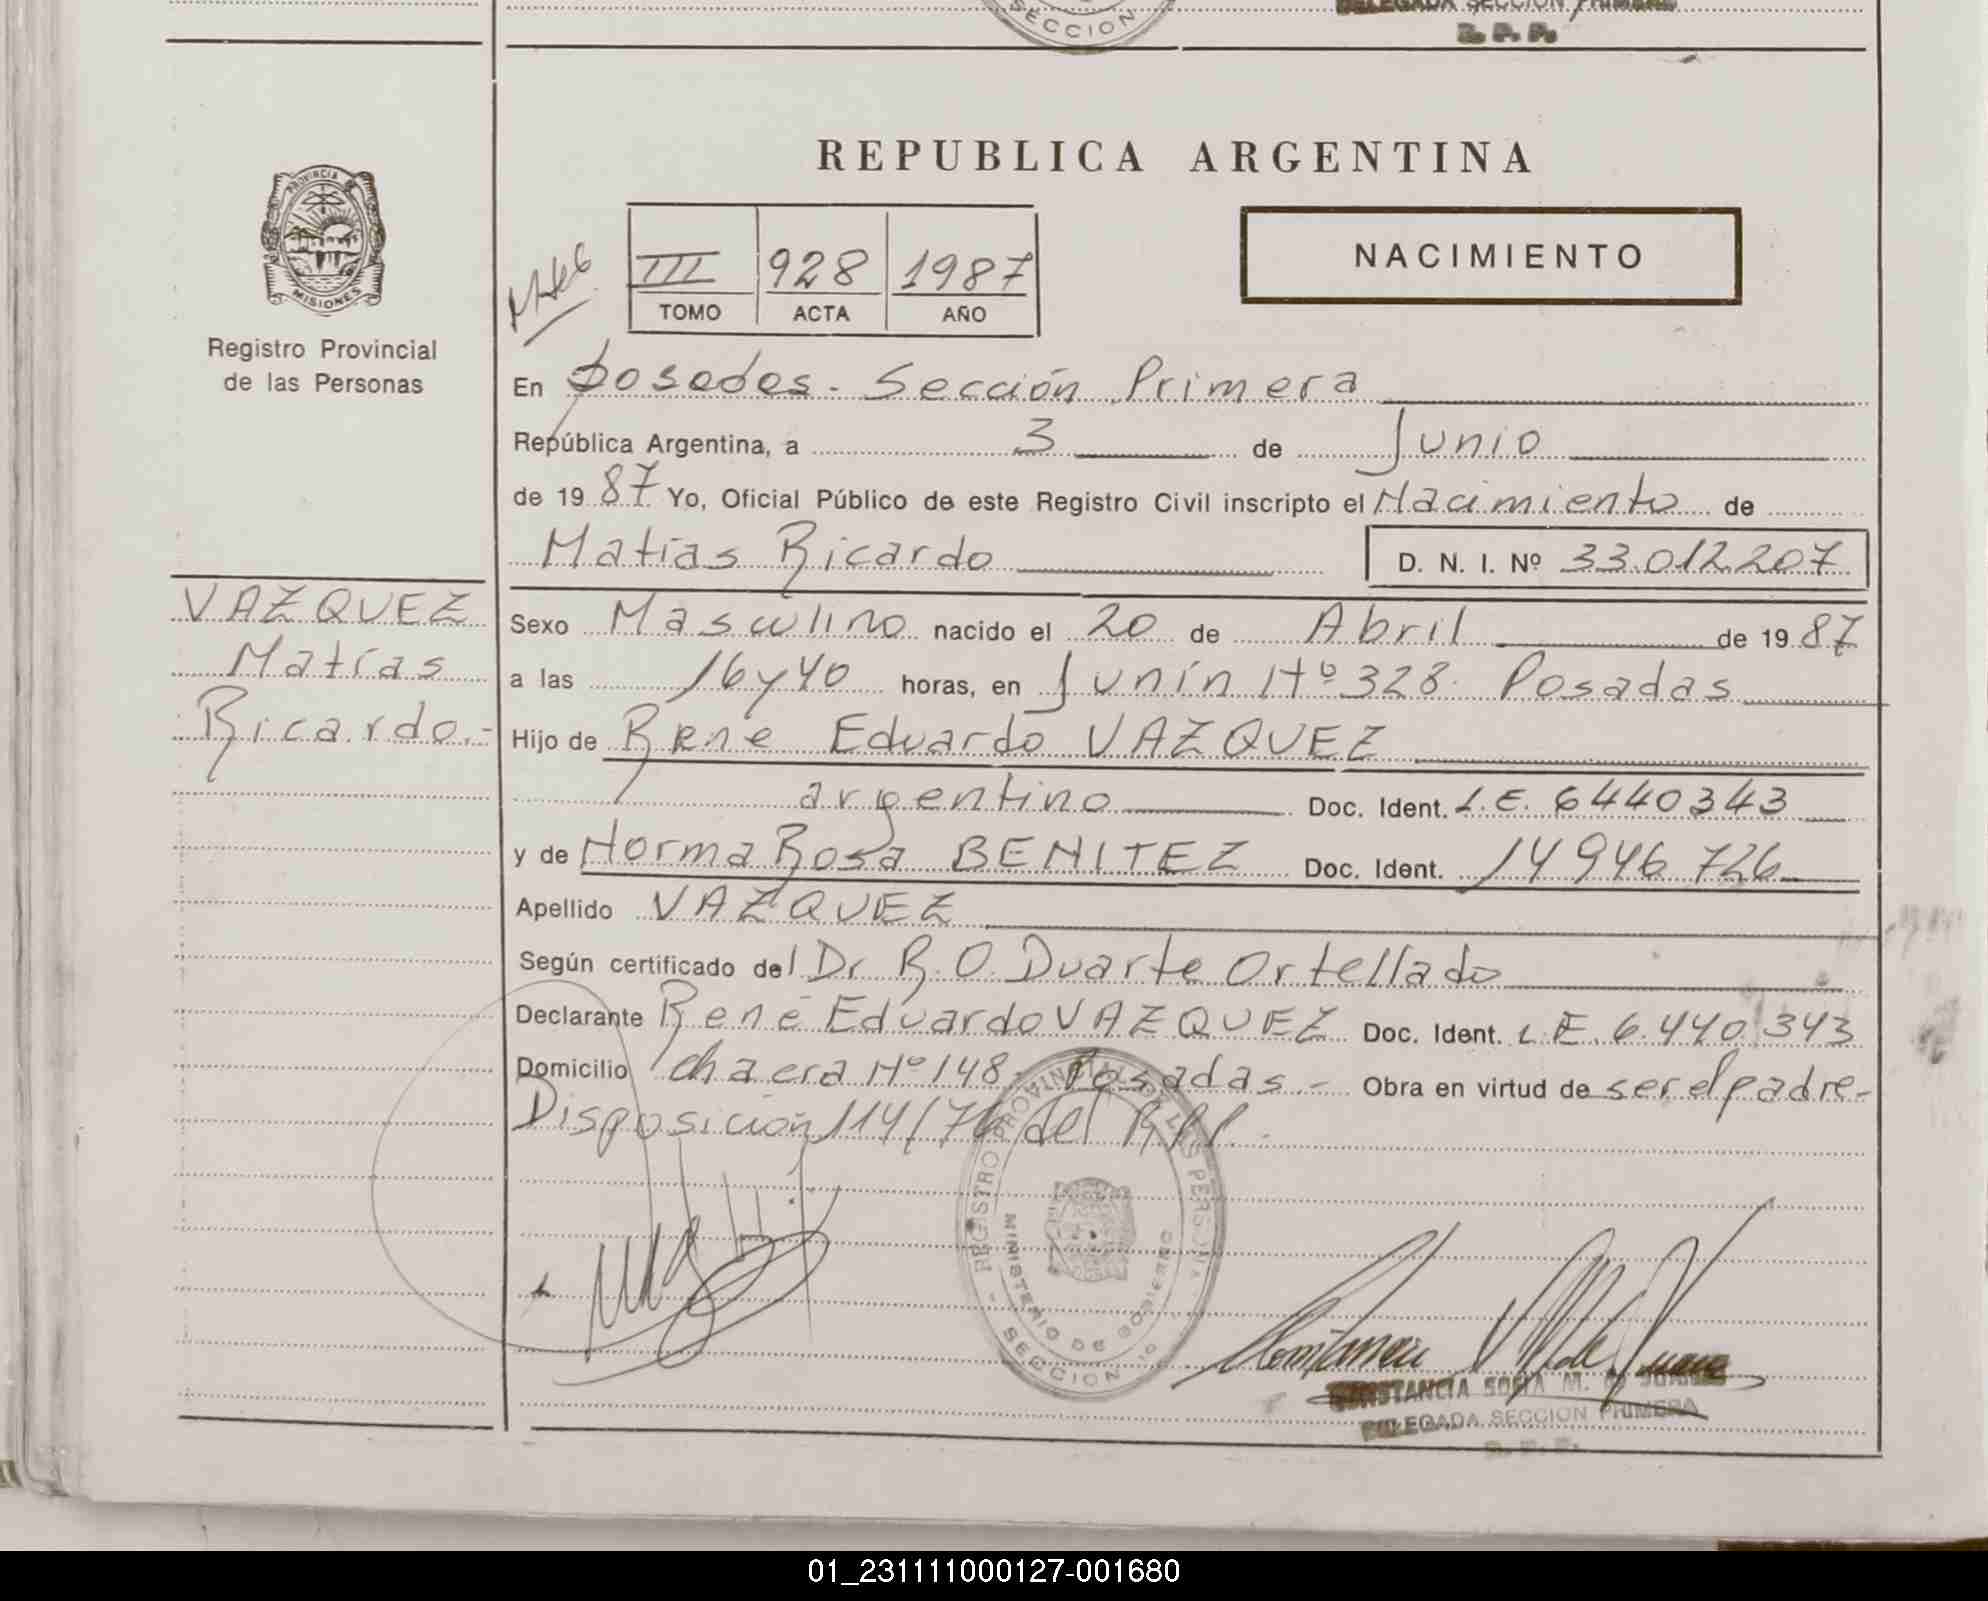 SECCION
DELEGADA SECCION PRIMERA
R. P. P.
REPUBLICA ARGENTINA
PROVINCIA DE
MISIONES
Registro Provincial
de las Personas
III 928 1987
TOMO ACTA AÑO
NACIMIENTO
En Posadas - Sección Primera
República Argentina, a 3 de Junio
de 1987 Yo, Oficial Público de este Registro Civil inscripto el Nacimiento de
Matías Ricardo D. N. I. Nº 33.012.207
VAZQUEZ
Matías
Ricardo.-
Sexo Masculino nacido el 20 de Abril de 1987
a las 16 y 40 horas, en Junín Nº 328. Posadas
Hijo de Rene Eduardo VAZQUEZ
argentino Doc. Ident. L.E. 6440343
y de Norma Rosa BENITEZ Doc. Ident. 14946726
Apellido VAZQUEZ
Según certificado del Dr R.O. Duarte Ortellado
Declarante René Eduardo VAZQUEZ Doc. Ident. L.E. 6.440.343
Domicilio chacra Nº 148 - Posadas.- Obra en virtud de ser el padre-
Disposición 114/76 del R.P.P. -
REGISTRO PROVINCIAL DE LAS PERSONAS
MINISTERIO DE GOBIERNO
SECCION 1º
CONSTANCIA SOFIA M. de
DELEGADA SECCION PRIMERA
R. P. P.
01_231111000127-001680